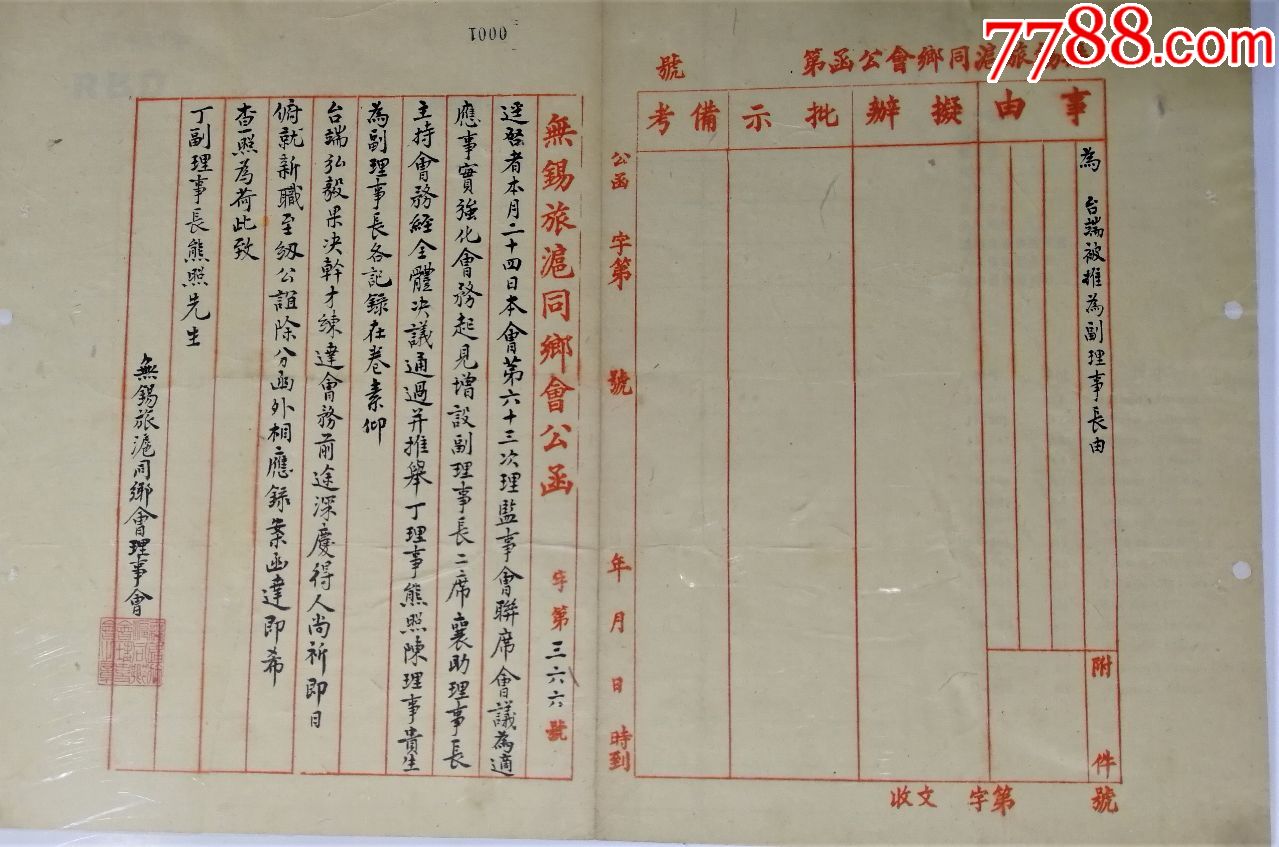 7788.com
1000
錫旅滬同鄉會公函第 號
事由
擬辦
批示
備考
為 台端被推為副理事長由
附件
號
收文 字第
公函 字第 號 年 月 日 時到
無錫旅滬同鄉會公函 字第三六六號
逕啓者本月二十四日本會第六十三次理監事會聯席會議為適
應事實強化會務起見增設副理事長二席襄助理事長
主持會務經全體決議通過并推舉丁理事熊照陳理事貴生
為副理事長各記錄在卷素仰
台端弘毅果决幹才練達會務前途深慶得人尚祈即日
俯就新職至紉公誼除分函外相應錄案函達即希
查照為荷此致
丁副理事長熊照先生
無錫旅滬同鄉會理事會